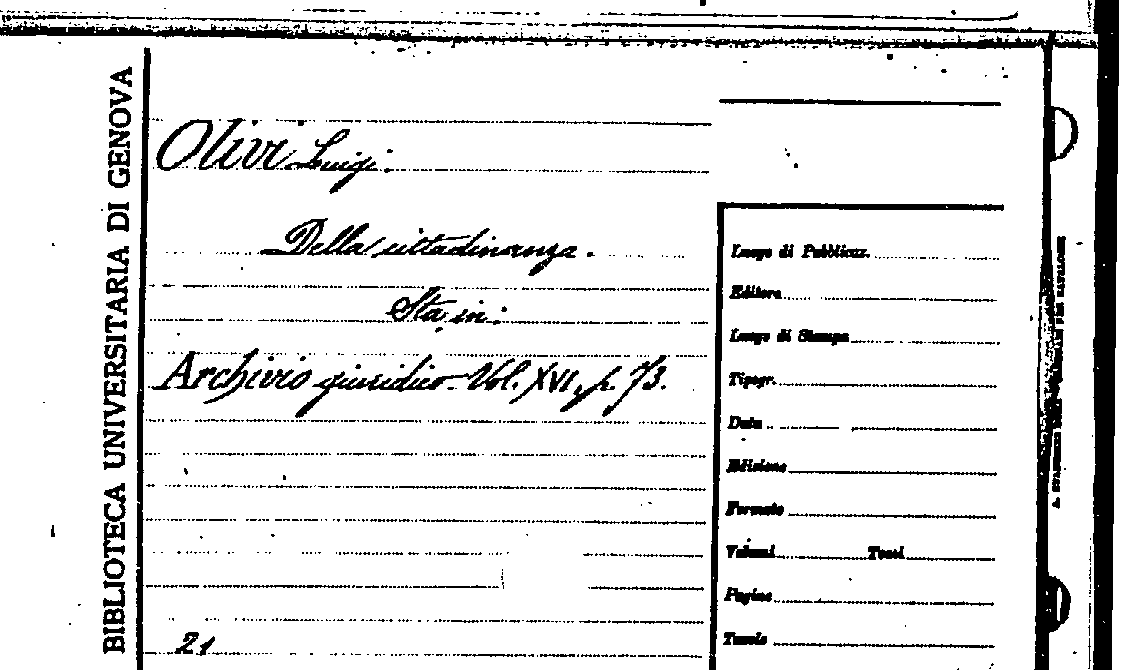 BIBLIOTECA UNIVERSITARIA DI GENOVA
Olivi Luigi.
Della cittadinanza.
Sta in:
Archivio giuridico - Vol. XVI, p. 73.
21
Luogo di Pubblicaz.
Editore
Luogo di Stampa
Tipogr.
Data
Edizione
Formato
Volumi Tomi
Pagine
Tavole